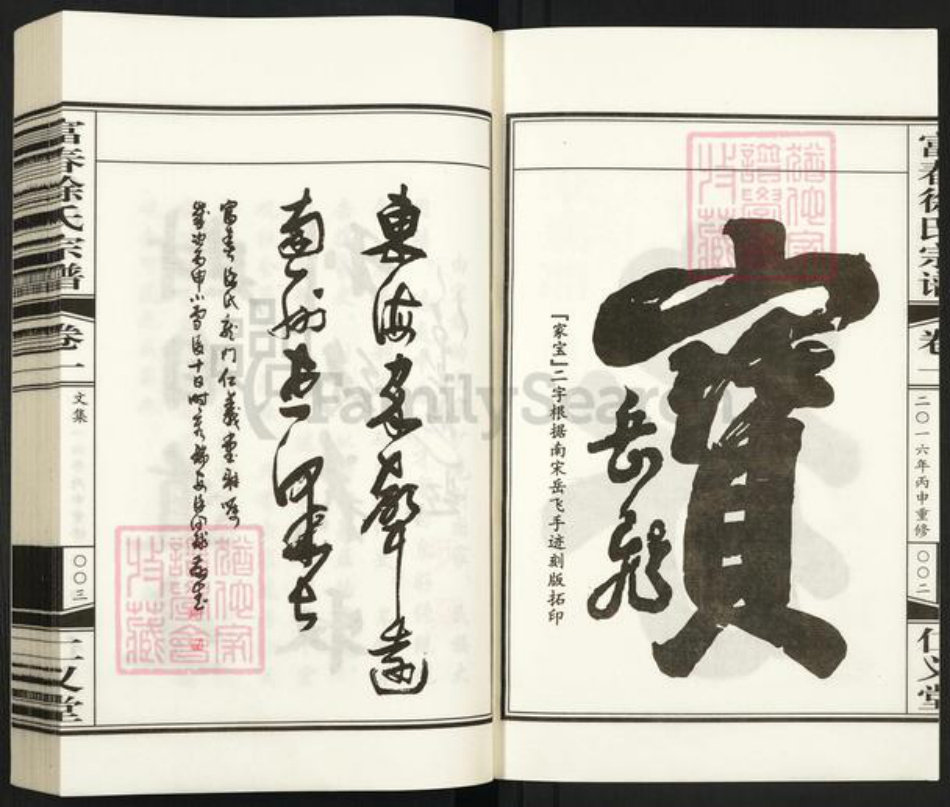 富春徐氏宗譜
卷一
二〇一六年丙申重修
〇〇二
仁义堂
寶
岳飛
「家宝」二字根据南宋岳飞手迹刻版拓印
東海家聲遠
南州世澤長
富春徐氏龙门仁義堂雅嘱
歲次丙申小雪後十日時
富春徐氏宗譜
卷一
文集
〇〇三
仁义堂
FamilySearch